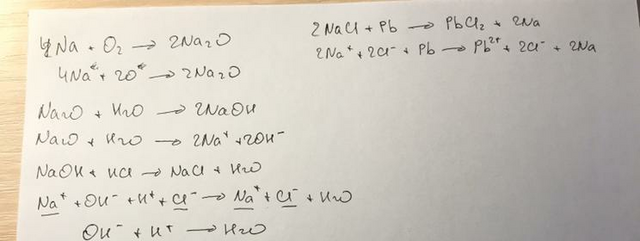 4Na + O₂ → 2Na₂O
4Na⁺ + 2O → 2Na₂O
Na₂O + H₂O → 2NaOH
Na₂O + H₂O → 2Na⁺ + 2OH⁻
NaOH + HCl → NaCl + H₂O
Na⁺ + OH⁻ + H⁺ + Cl⁻ → Na⁺ + Cl⁻ + H₂O
OH⁻ + H⁺ → H₂O
2NaCl + Pb → PbCl₂ + 2Na
2Na⁺ + 2Cl⁻ + Pb → Pb²⁺ + 2Cl⁻ + 2Na